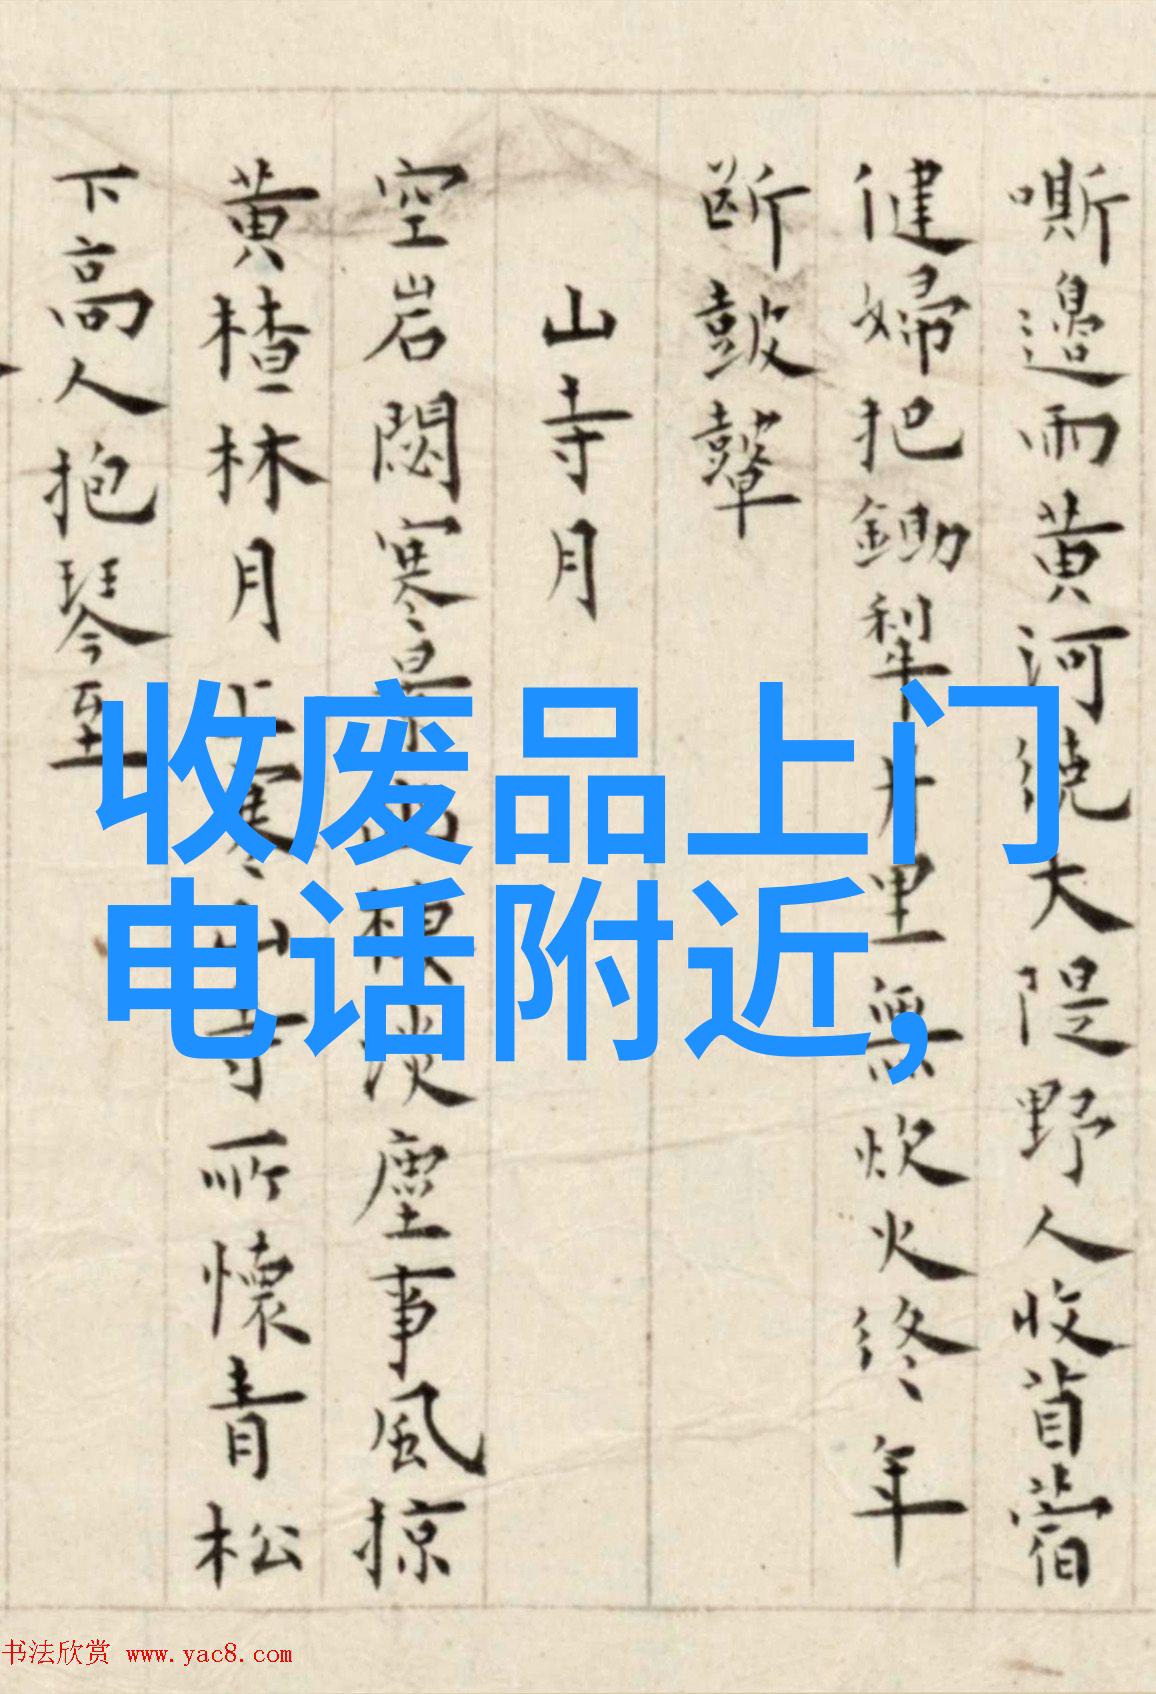 嘶邉雨黄河繞大隄野人收首蓿
健婦把鋤犁 里無炊火終年
断鼓鼙
山寺月
空岩閟寒 淡塵事風掠
黄樝林月上寒山寺所懷青松
下高人抱琴至
收废品上门
电话附近,
书法欣赏 www.yac8.com